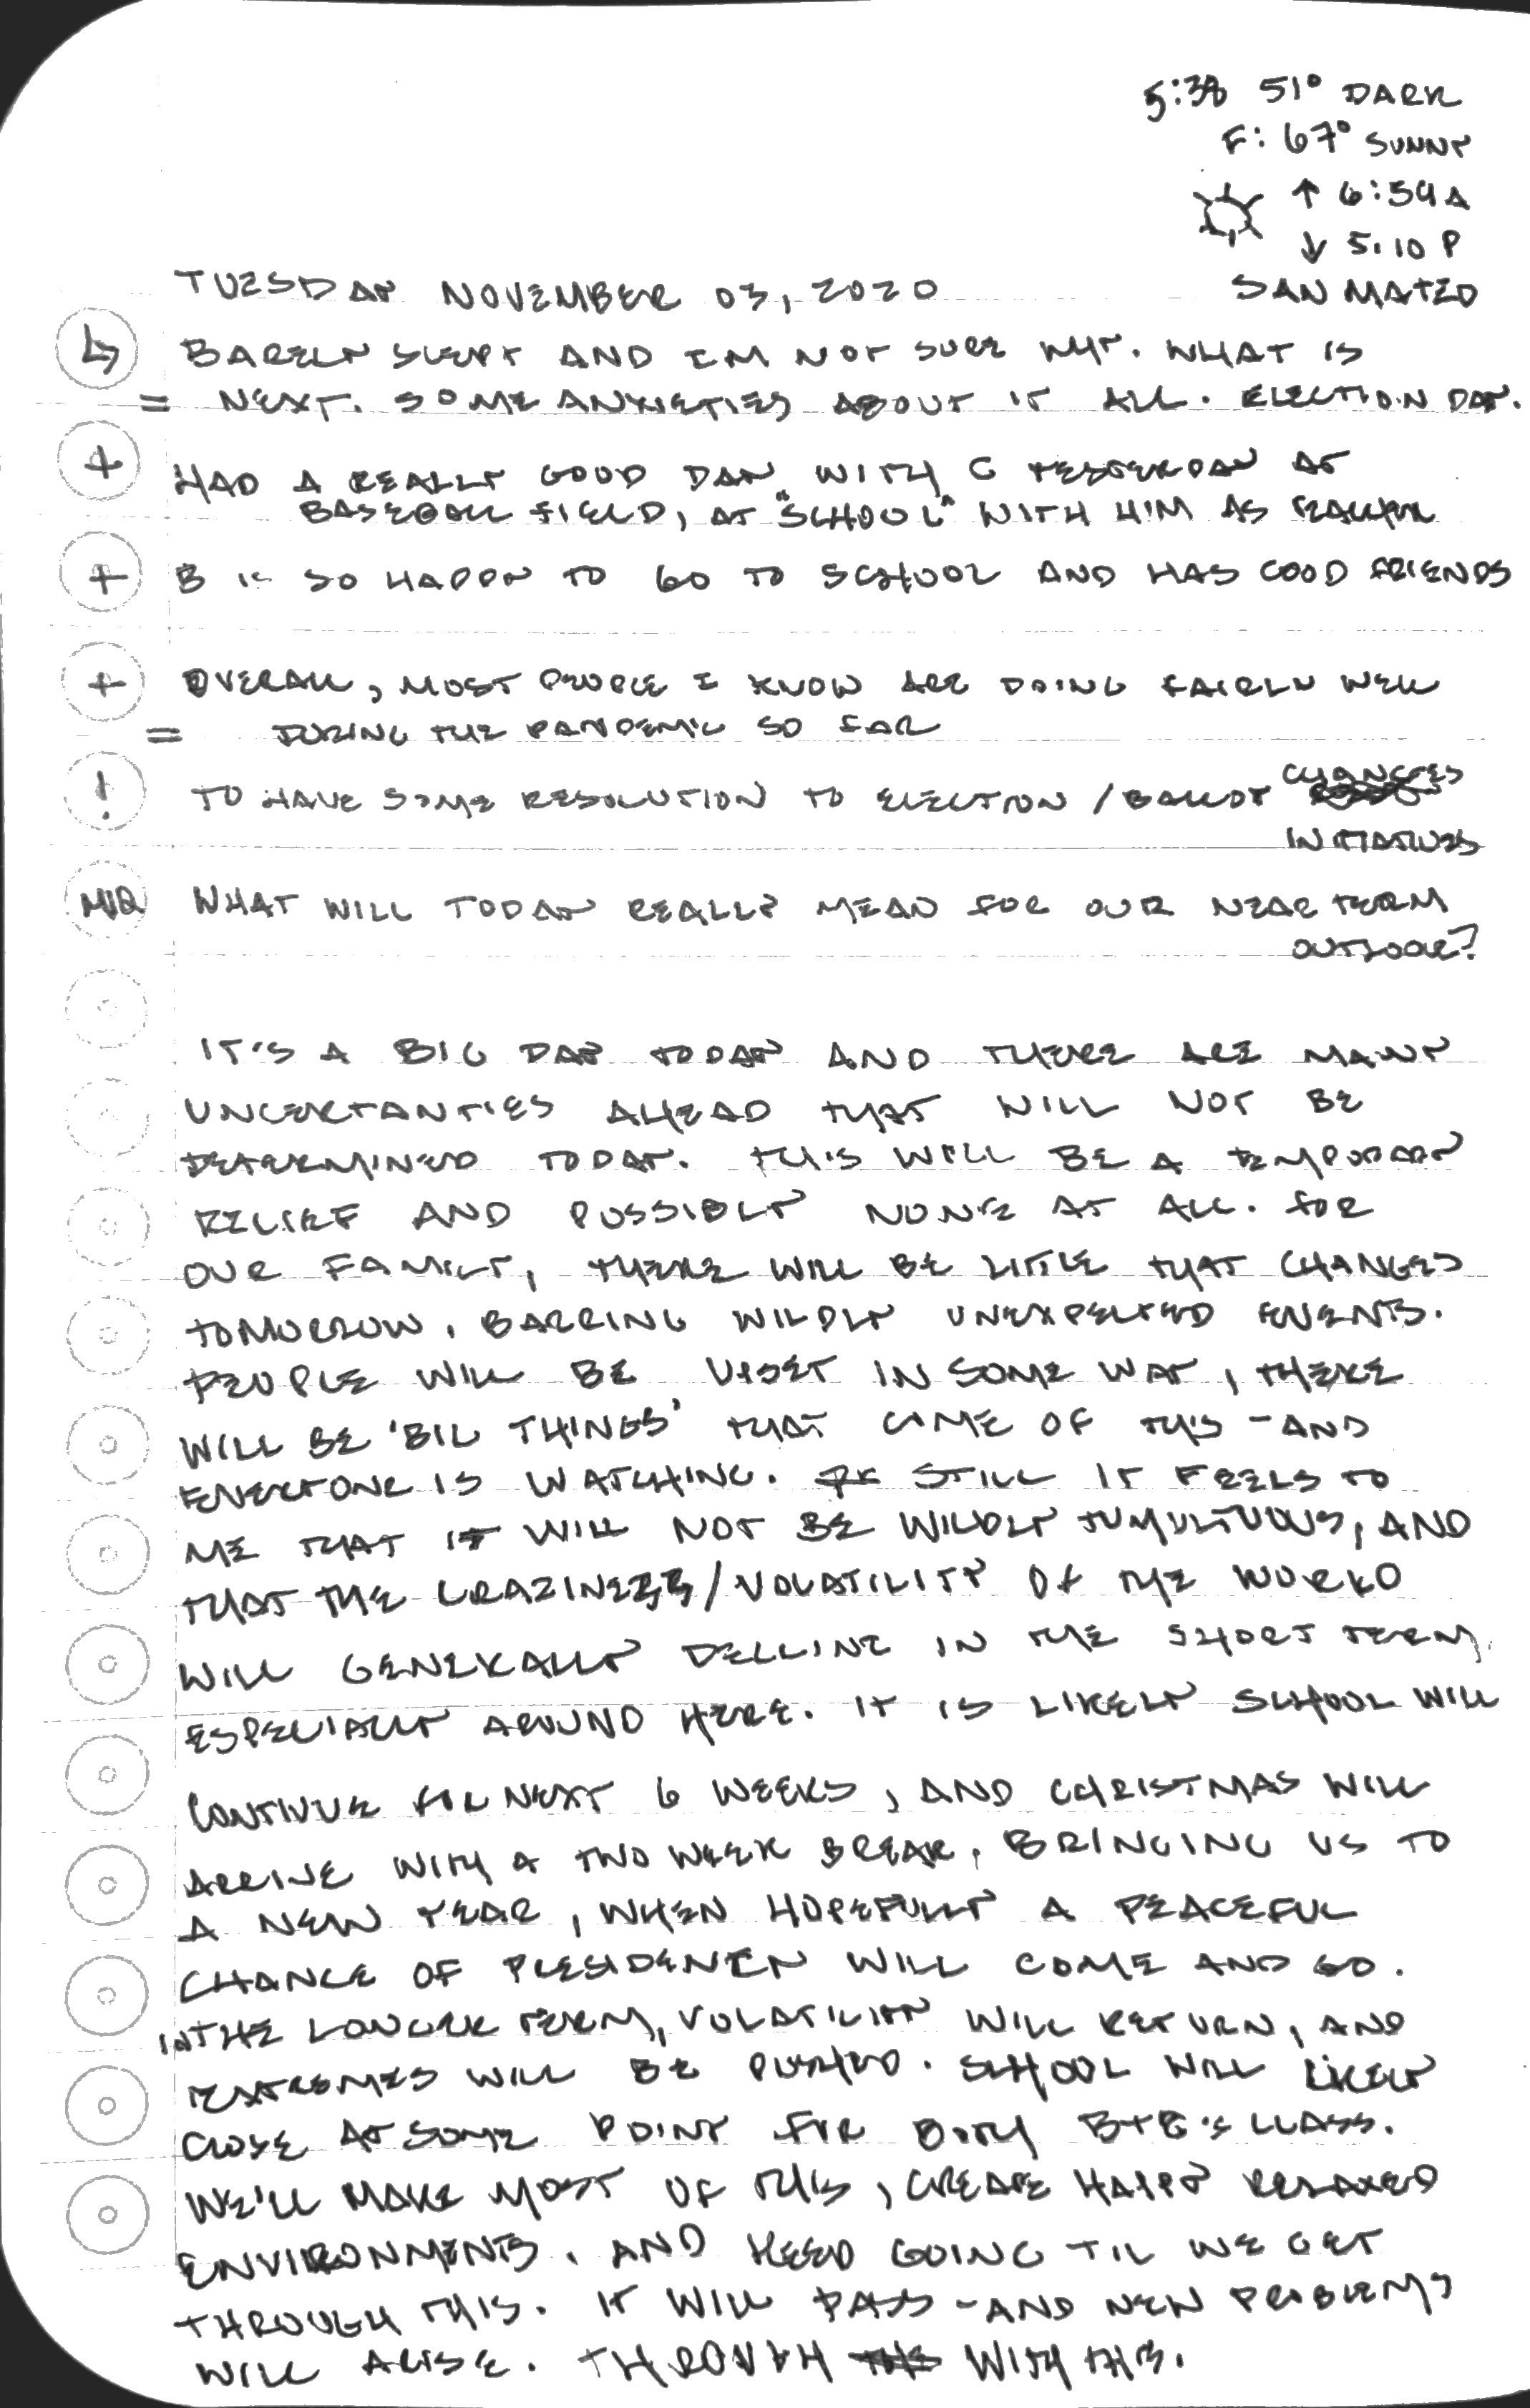 5:38 51° DARK
F: 67° SUNNY
↑ 6:39A
↓ 5:10 P
TUESDAY NOVEMBER 03, 2020
SAN MATEO
BARELY SLEPT AND IM NOT SURE WHY. WHAT IS
= NEXT. SOME ANXIETIES ABOUT IT ALL. ELECTION DAY.
+ HAD A REALLY GOOD DAY WITH C YESTERDAY AT
BASEBALL FIELD, AT "SCHOOL" WITH HIM AS TEACHER
+ B IS SO HAPPY TO GO TO SCHOOL AND HAS GOOD FRIENDS
+ OVERALL, MOST PEOPLE I KNOW ARE DOING FAIRLY WELL
= DURING THE PANDEMIC SO FAR
! TO HAVE SOME RESOLUTION TO ELECTION / BALLOT CHANGES
INITIATIVES
MIQ WHAT WILL TODAY REALLY MEAN FOR OUR NEAR TERM
OUTLOOK?
IT'S A BIG DAY TODAY AND THERE ARE MANY
UNCERTANTIES AHEAD THAT WILL NOT BE
DETERMINED TODAY. THIS WILL BE A TEMPORARY
RELIEF AND POSSIBLY NONE AT ALL. FOR
OUR FAMILY, THERE WILL BE LITTLE THAT CHANGES
TOMORROW, BARRING WILDLY UNEXPECTED EVENTS.
PEOPLE WILL BE UPSET IN SOME WAY, THERE
WILL BE 'BIG THINGS' THAT COME OF THIS - AND
EVERYONE IS WATCHING. STILL IT FEELS TO
ME THAT IT WILL NOT BE WILDLY TUMULTUOUS, AND
THAT THE CRAZINESS/VOLATILITY OF THE WORLD
WILL GENERALLY DECLINE IN THE SHORT TERM,
ESPECIALLY AROUND HERE. IT IS LIKELY SCHOOL WILL
CONTINUE FOR NEXT 6 WEEKS, AND CHRISTMAS WILL
ARRIVE WITH A TWO WEEK BREAK, BRINGING US TO
A NEW YEAR, WHEN HOPEFULLY A PEACEFUL
CHANGE OF PRESIDENCY WILL COME AND GO.
IN THE LONGER TERM, VOLATILITY WILL RETURN, AND
EXTREMES WILL BE PUSHED. SCHOOL WILL LIKELY
CLOSE AT SOME POINT FOR BOTH CLASS.
WE'LL MAKE MOST OF THIS, CREATE HAPPY RELAXED
ENVIRONMENTS, AND KEEP GOING TIL WE GET
THROUGH THIS. IT WILL PASS - AND NEW PROBLEMS
WILL ARISE. THROUGH WITH THIS.